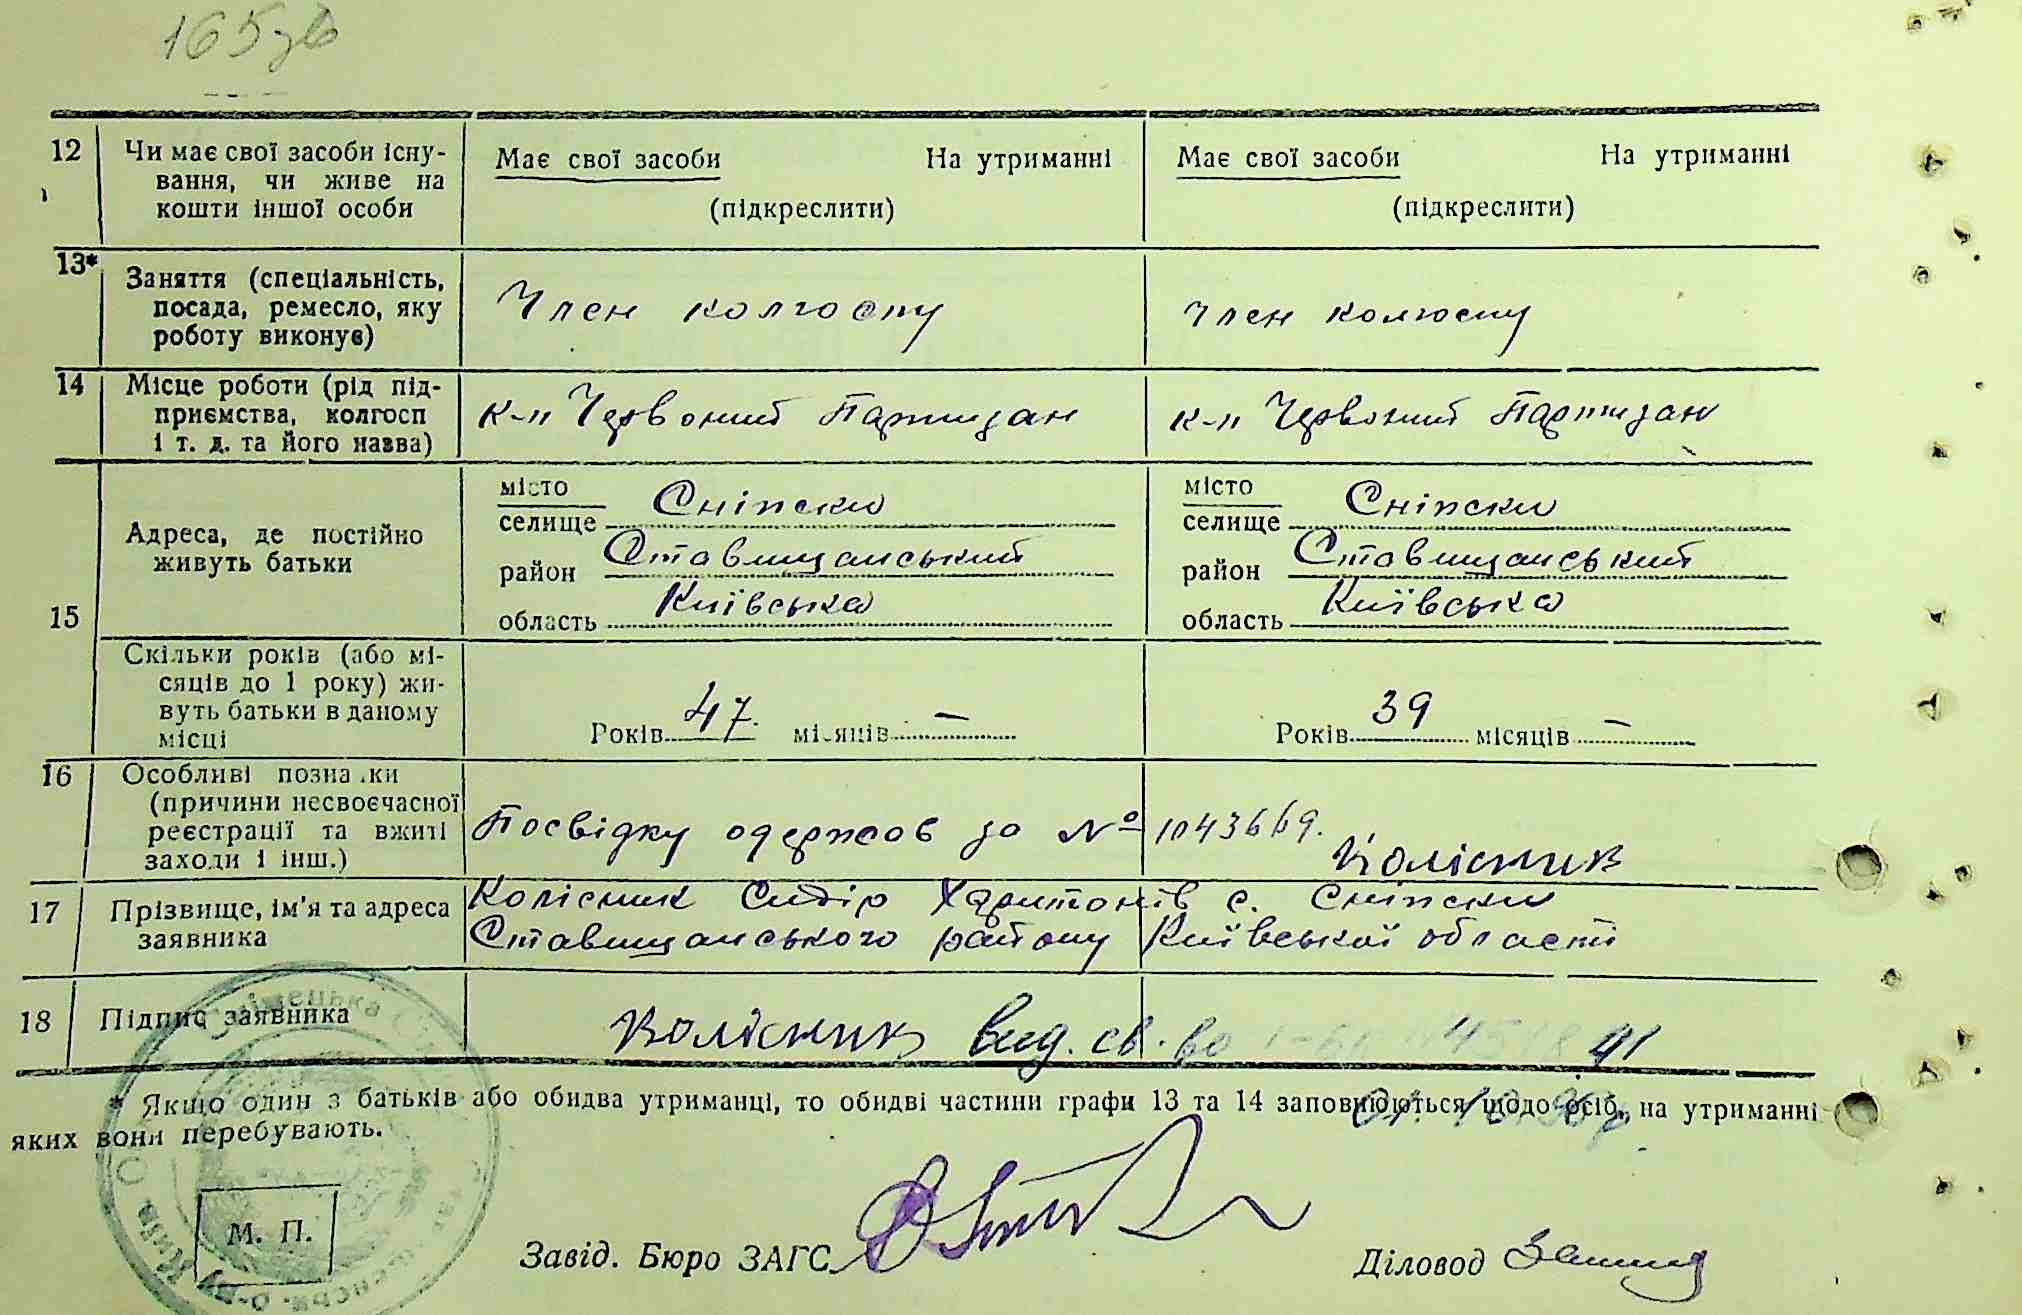 165зв
12 Чи має свої засоби існу- Має свої засоби На утриманні Має свої засоби На утриманні
вання, чи живе на
кошти іншої особи (підкреслити) (підкреслити)
13* Заняття (спеціальність,
посада, ремесло, яку Член колгоспу член колгоспу
роботу виконує)
14 Місце роботи (рід під-
приємства, колгосп к-п Червоний Партизан к-п Червоний Партизан
і т. д. та його назва)
15 Адреса, де постійно
живуть батьки
місто
селище Сніпски
район Ставищанський
область Київська
місто
селище Сніпски
район Ставищанський
область Київська
Скільки років (або мі-
сяців до 1 року) жи-
вуть батьки в даному
місці
Років 47. місяців — Років 39 місяців —
16 Особливі познаки
(причини несвоєчасної
реєстрації та вжиті Посвідку одержав за № 1043669.
заходи і інш.) Колісник
17 Прізвище, ім'я та адреса Колісник Сидір Харитонів с. Сніпски
заявника Ставищанського району Київської області
18 Підпис заявника Колісник вид. св. во
* Якщо один з батьків або обидва утриманці, то обидві частини графи 13 та 14 заповнюються щодо осіб, на утриманні
яких вони перебувають.
М. П.
Завід. Бюро ЗАГС Діловод